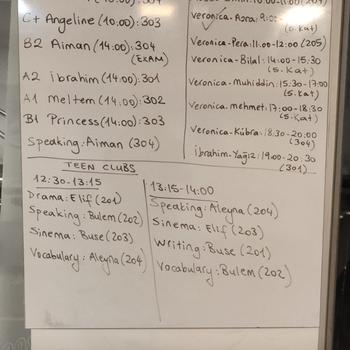 C+ Angeline (10.00):303
B2 Aiman (14:00):304
(EXAM)
A2 İbrahim(14:00):301
A1 Meltem (14:00):302
B1 Princess (14:00):303
Speaking: Aiman (304)
(5.Kat)
Veronica-Pera:11.00-12:00 (205)
Veronica-Bilal:14:00-15:30
(5.Kat)
Veronica-Muhiddin:15.30-17:00
(5.Kat)
Veronica.mehmet:17:00-18:30
(5.Kat)
Veronica-Kübra:18:30-20:00
(304)
İbrahim-Yağız:19:00-20:30
(301)
TEEN CLUBS
12:30-13:15
Drama: Elif (201)
Speaking: Bulem (202)
Sinema: Buse (203)
Vocabulary: Aleyna (204)
13:15-14:00
Speaking: Aleyna (204)
Sinema: Elif (203)
Writing: Buse (201)
Vocabulary: Bulem (202)